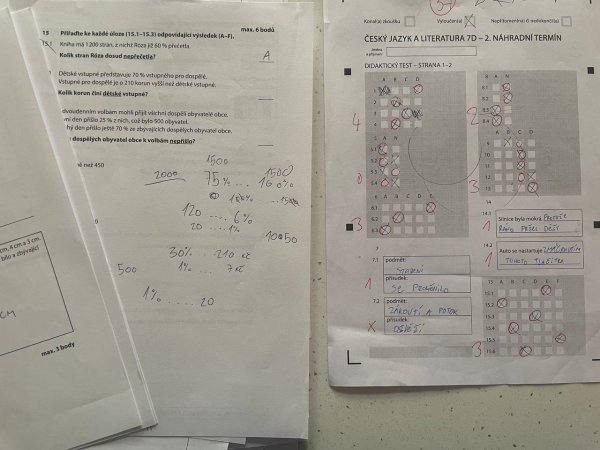 max. 6 bodů
15 Přiřaďte ke každé úloze (15.1–15.3) odpovídající výsledek (A–F).
15.1 Kniha má 1 200 stran, z nichž Róza již 60 % přečetla.
Kolik stran Róza dosud nepřečetla?
A
Dětské vstupné představuje 70 % vstupného pro dospělé.
Vstupné pro dospělé je o 210 korun vyšší než dětské vstupné.
Kolik korun činí dětské vstupné?
dvoudenním volbám mohli přijít všichni dospělí obyvatelé obce.
den přišlo 25 % z nich, což bylo 500 obyvatel.
den přišlo ještě 70 % ze zbývajících dospělých obyvatel obce.
dospělých obyvatel obce k volbám nepřišlo?
než 450
1500
2000 75% ... 100%
120 ... 6%
20 ... 1%
30% 210 Kč
500 1% ... 7 Kč
1% ..... 20
4 cm a 3 cm,
bílo a zbývající
CM
max. 3 body
Koná(a) zkoušku
Vyloučen(a)
Nepřítomen(a) či nedokončil(a)
ČESKÝ JAZYK A LITERATURA 7D – 2. NÁHRADNÍ TERMÍN
Jméno
a příjmení
DIDAKTICKÝ TEST – STRANA 1–2
A B C D
1
2
3
4
4
A N
5.1
5.2
5.3
5.4
0
A B C D E
6.1
6.2
6.3
3
7.1
podmět:
STAVENÍ
přísudek:
SE PROMĚNILA
1
7.2
podmět:
ZÁKOUTÍ A POTOK
přísudek:
OSVĚŽÍ
X
A N
8.1
8.2
8.3
8.4
2
A B C D
9
10
11
12
13
3
14.1
Silnice byla mokrá PROTOŽE
RÁNO PRŠEL DÉŠŤ
1
14.2
Auto se nastartuje ZMÁČKNUTÍM
TOHOTO TLAČÍTKA
1
A B C D E F
15.1
15.2
15.3
15.4
15.5
15.6
3